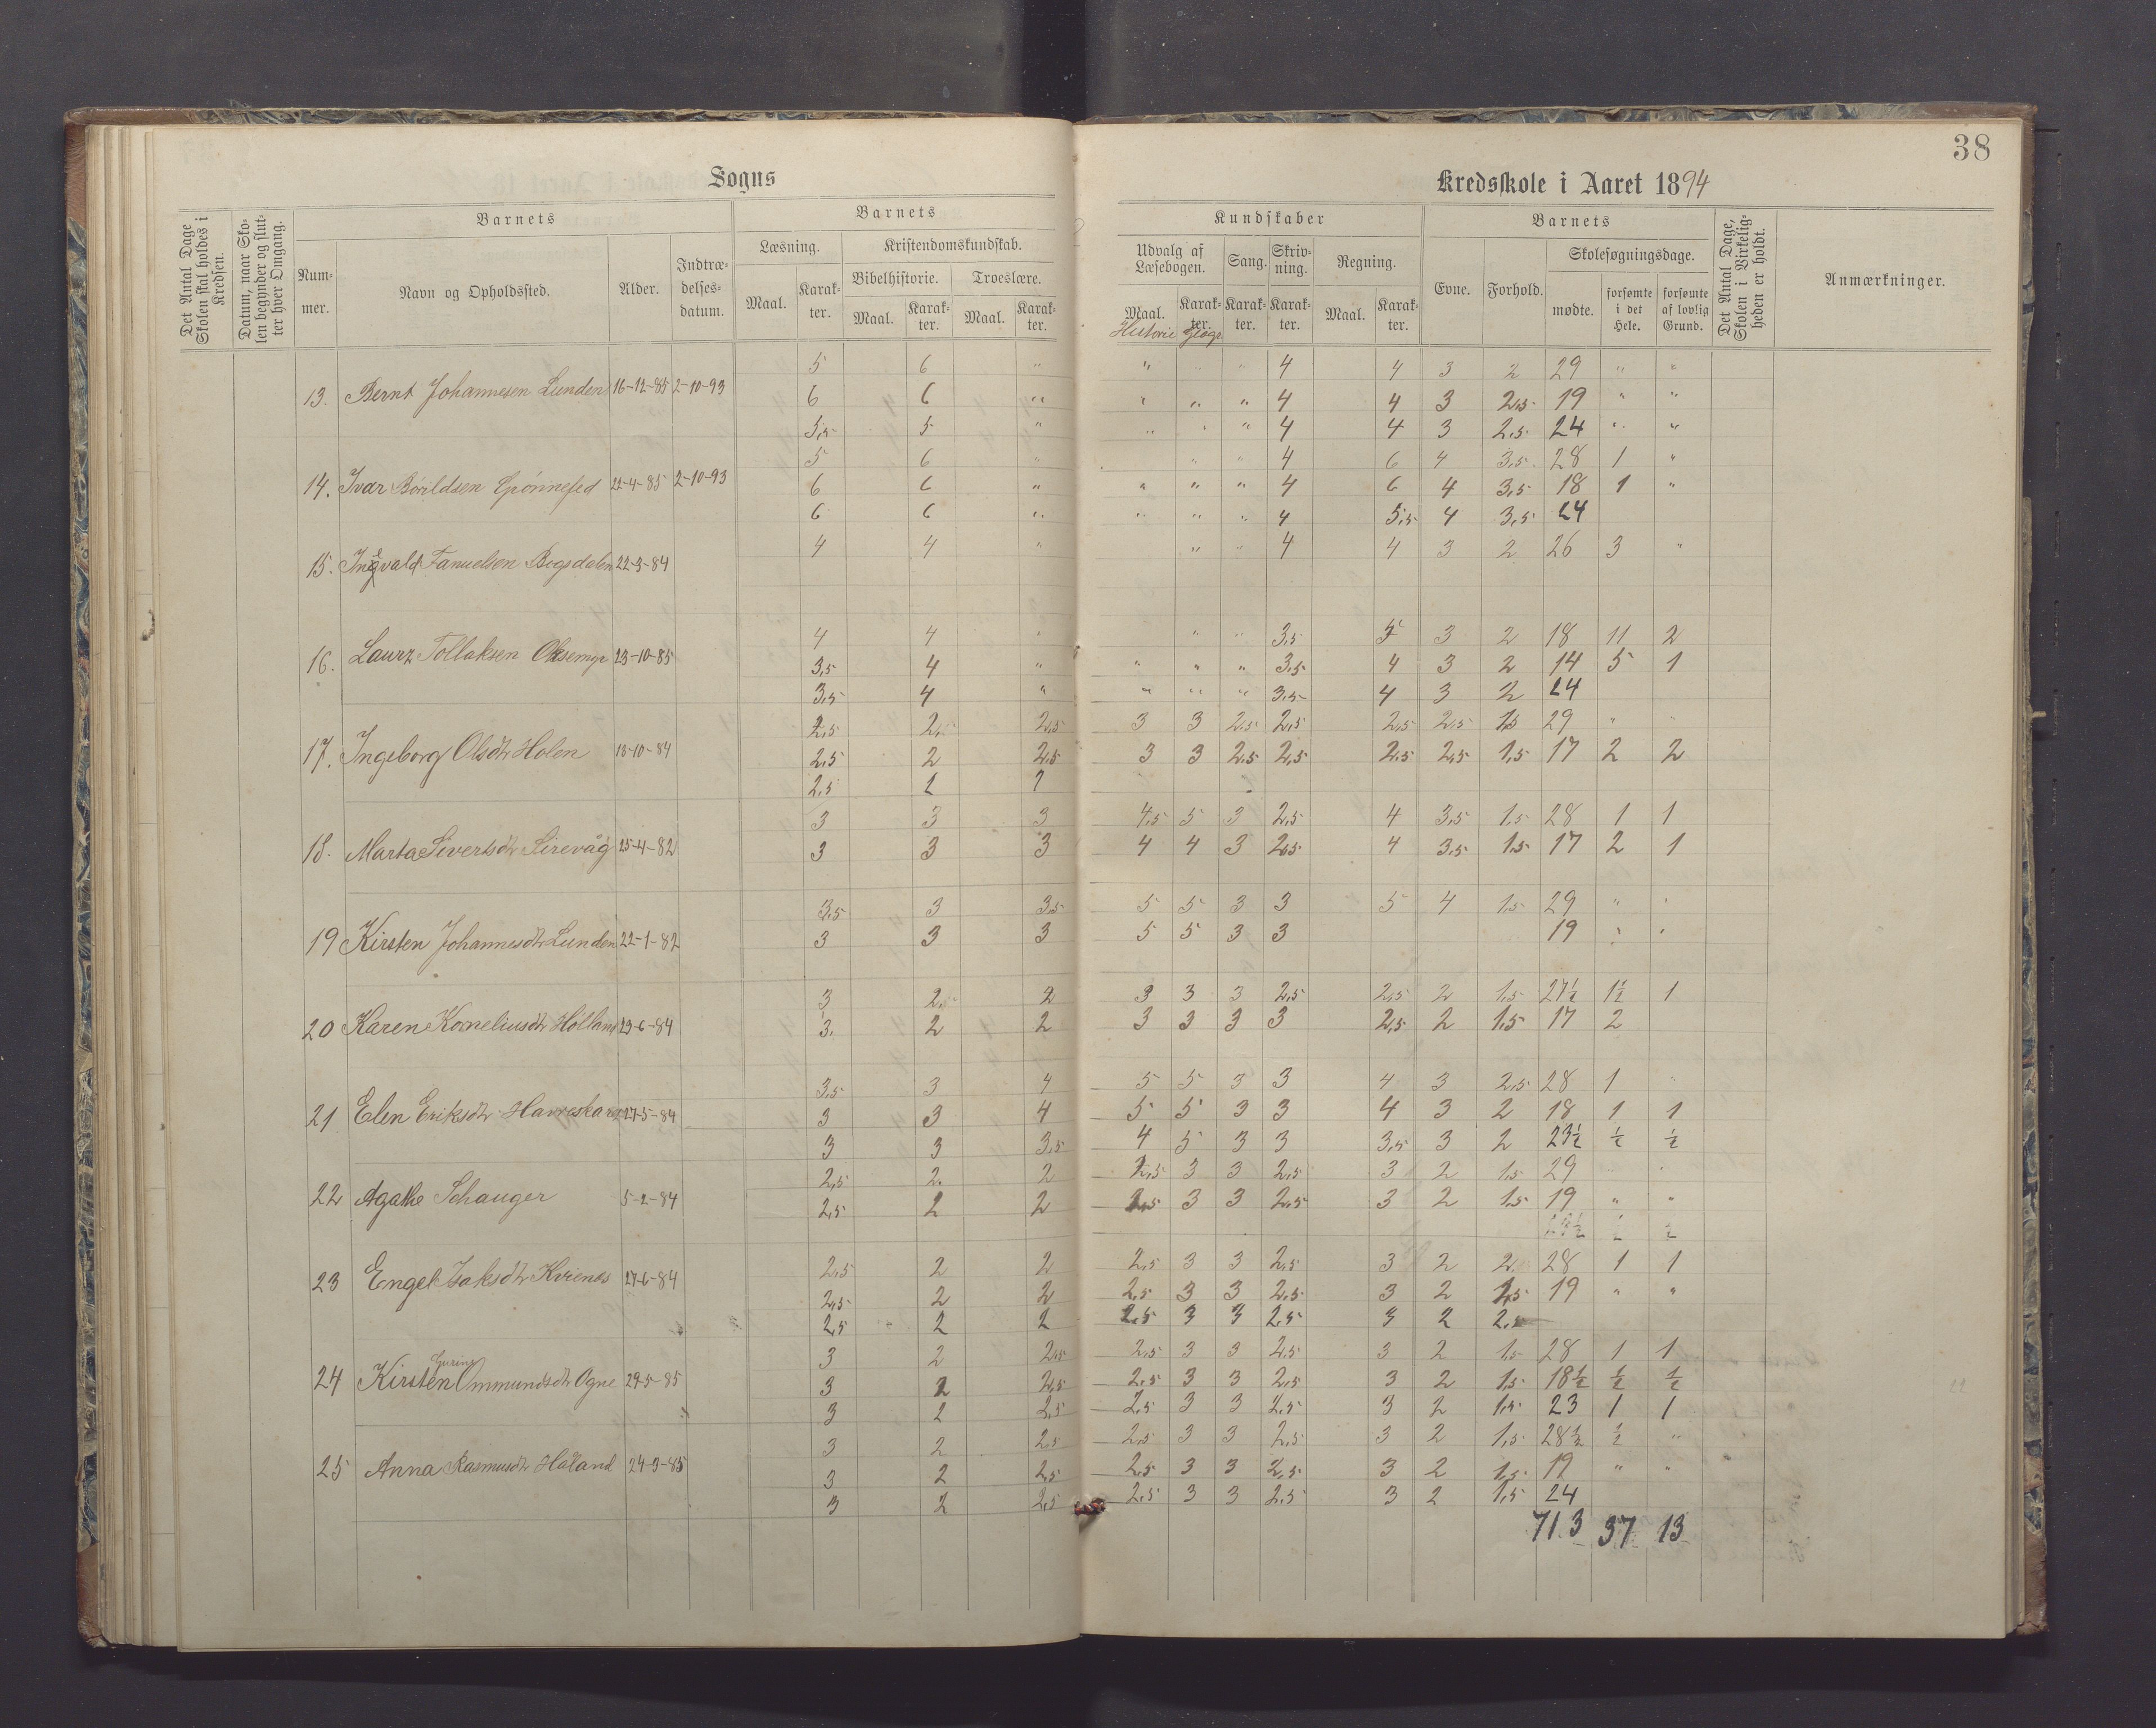 38
Sogns
Kredsskole i Aaret 1894
Det Antal Dage Skolen skal holdes i Kredsen.
Datum, naar Skolen begynder og slutter hver Omgang.
Barnets
Nummer.
Navn og Opholdssted.
Alder.
Indtrædelsesdatum.
Barnets
Læsning.
Kristendomskundskab.
Bibelhistorie.
Troeslære.
Maal. Karakter. Maal. Karakter. Maal. Karakter.
Kundskaber
Udvalg af Læsebogen.
Sang. Skrivning. Regning.
Maal. Karakter. Karakter. Karakter. Maal. Karakter.
Historie Geogr
Barnets
Evne. Forhold.
Skolesøgningsdage.
mødte. forsømte i det Hele. forsømte af lovlig Grund.
Det Antal Dage, Skolen i Virkeligheden er holdt.
Anmærkninger.
5 6 " " " " 4 4 3 2 29 " "
13. Bernt Johannesen Lunden 16-12-85 2-10-93 6 6 " " " " 4 4 3 2,5 19 " "
5,5 5 " " " " 4 4 3 2,5 24 " "
5 6 " " " 4 6 4 3,5 28 1 "
14. Ivar 21-4-85 2-10-93 6 6 " " " " 4 6 4 3,5 18 1 "
6 6 " " " " 4 5,5 4 3,5 24
4 4 " " " 4 4 3 2 26 3 "
15. Ingvald Tanuelsen 22-3-84
4 4 " " " 3,5 5 3 2 18 11 2
16. Laurz Tollaksen Oksemyr 23-10-85 3,5 4 " " " " 3,5 4 3 2 14 5 1
3,5 4 " " " " 3,5 4 3 2 24
2,5 2, 2,5 3 3 2,5 2,5 2,5 2,5 1,5 29 " "
17. Ingeborg Olsdtr Holen 18-10-84 2,5 2 2,5 3 3 2,5 2,5 2,5 2,5 1,5 17 2 2
2,5 2
3 3 3 4,5 5 3 2,5 4 3,5 1,5 28 1 1
18. Marta Sivertsdtr Sirevåg 25-4-82 3 3 3 4 4 3 2,5 4 3,5 1,5 17 2 1
3,5 3 3,5 5 5 3 3 5 4 1,5 29 " "
19 Kirsten Johannesdtr Lunden 22-1-82 3 3 3 5 5 3 3 19 " "
3 2, 2 3 3 3 2,5 2,5 2 1,5 27½ 1½ 1
20 Karen Korneliusdtr Holland 29-6-84 3 2 2 3 3 3 3 2,5 2 1,5 17 2
3,5 3 4 5 5 3 3 4 3 2,5 28 1 "
21 Elen Eriksdtr 27-5-84 3 3 4 5 5 3 3 4 3 2 18 1 1
3 3 3,5 4 5 3 3 3,5 3 2 23½ ½ ½
2,5 2. 2 2,5 3 3 2,5 3 2 1,5 29 " "
22 Agathe Schauger 5-2-84 2,5 2 2 2,5 3 3 2,5 3 2 1,5 19 " "
½ ½
2,5 2 2 2,5 3 3 2,5 3 2 2 28 1 1
23 Engel Isaksdtr 27-6-84 2,5 2 2 2,5 3 3 2,5 3 2 1,5 19 " "
2,5 2 2 2,5 3 3 2,5 3 2 2,5
3 2 2,5 2,5 3 3 2,5 3 2 1,5 28 1 1
24 Kirsten Ommundsdtr Ogne 29-5-85 3 2 2,5 2,5 3 3 2,5 3 2 1,5 18½ ½ ½
3 2 2,5 2,5 3 3 2,5 3 2 1,5 23 1 1
3 2 2,5 2,5 3 3 2,5 3 2 1,5 28½ ½ "
25 Anna Rasmusdtr Håland 24-9-85 3 2 2,5 2,5 3 3 2,5 3 2 1,5 19 " "
3 2 2,5 2,5 3 3 2,5 3 2 1,5 24
713 37 13